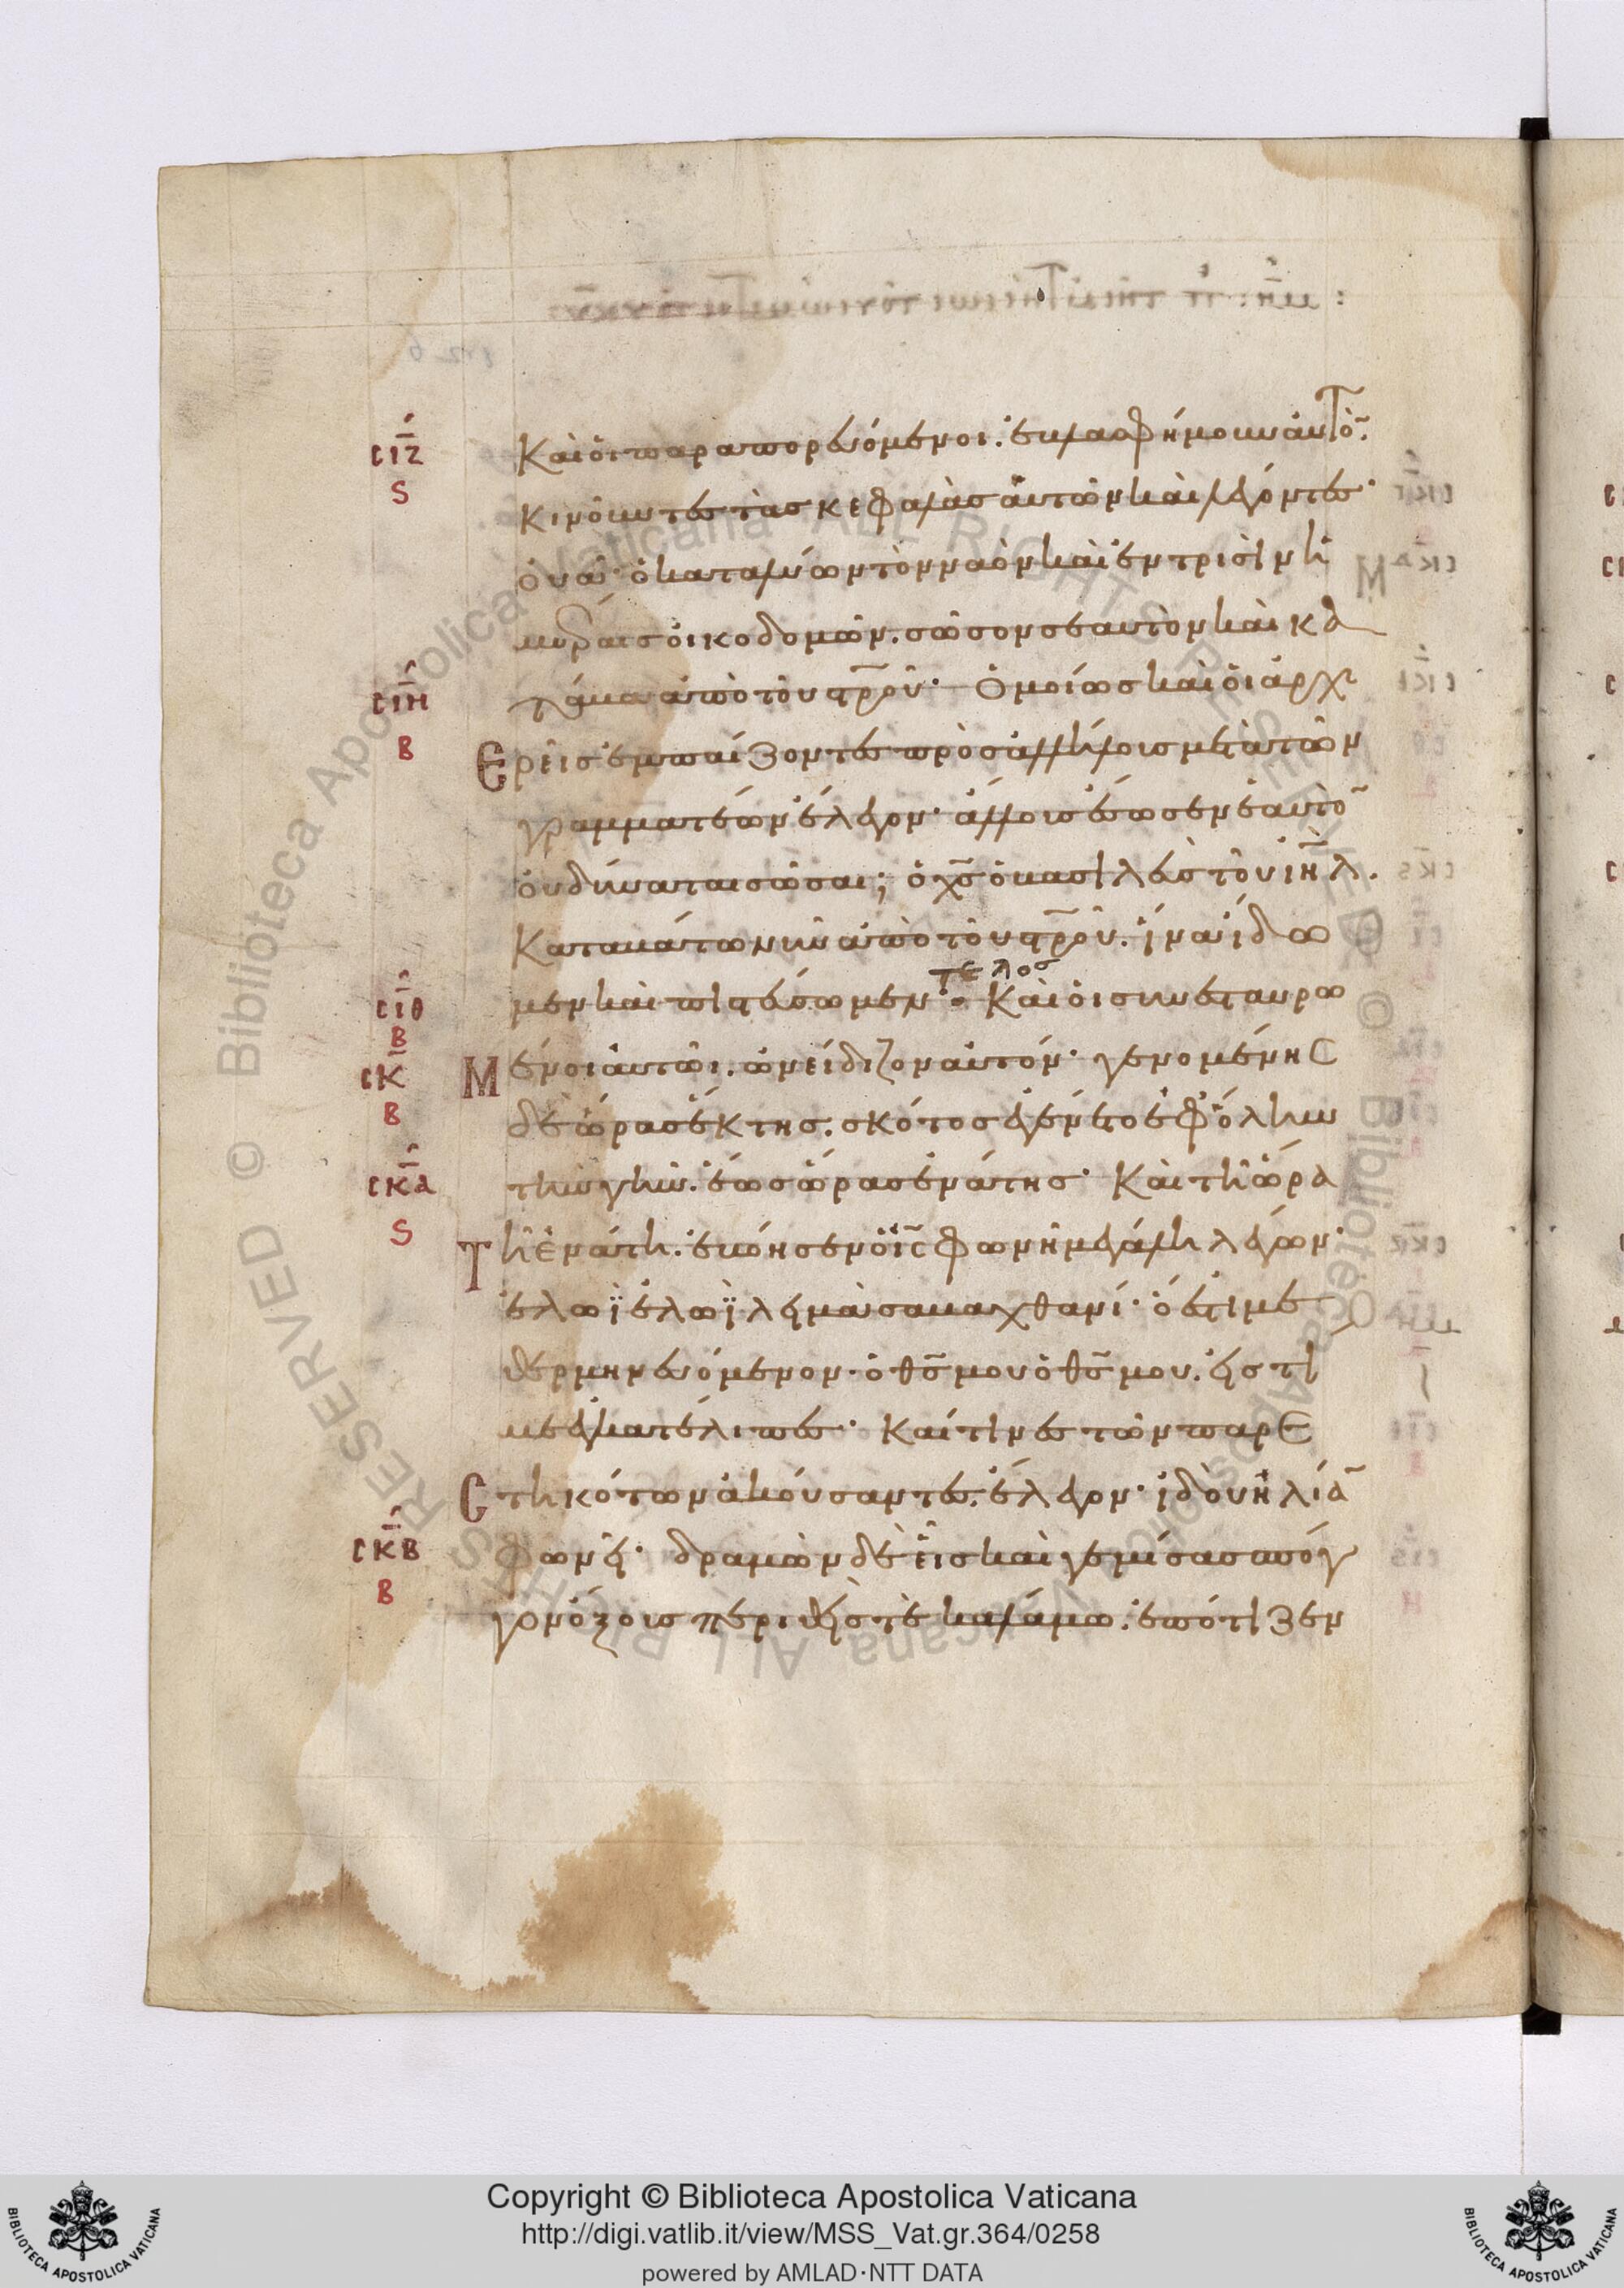 σιζ
ς
Καὶ ὁι παραπορευόμενοι. ἐβλασφήμουν ἀυτὸ̅.
κινοῦντες τὰς κεφαλὰς ἀυτῶν καὶ λέγοντες·
ὀυᾶ· ὁ καταλύων τὸν ναὸν καὶ ἐν τρισὶν ἡ
μέραις ὀικοδομῶν. σῶσον σεαυτὸν καὶ κα
σιη
τάβα ἀπὸ τοῦ σ̅ρ̅ο̅ῦ· Ὁμοίως καὶ ὁι ἀρχι
β
Ερεῖς ἐμπαίζοντες πρὸς ἀλλήλοις μετὰ τῶν
γραμματέων ἔλεγον· ἄλλοις ἔσωσεν ἑαυτὸ̅
ὀυ δύναται σῶσαι; ὁ χ̅ς̅ ὁ βασιλεὺς τοῦ ιη̅λ.
Καταβάτω νῦν ἀπὸ τοῦ σ̅ρ̅ο̅ῦ. ἵνα ἴδω
τελος
σιθ
μεν καὶ πιστεύσωμεν· Καὶ ὁι συνεσταυρω
β
σκ
Μένοι ἀυτῶι. ὠνείδιζον ἀυτόν· γενομένης
β
δὲ ὥρας ἕκτης. σκότος ἐγένετο ἐφ' ὅλην
σκα
τὴν γῆν. ἕως ὥρας ἐνάτης· Καὶ τῆ ὥρα
ς
Τῆ ἐνάτη. ἐβόησεν ὁ ι̅ς̅ φωνῆ μεγάλη λέγων·
ἐλωῒ ἐλωῒ λεμὰ σαβαχθανί· ὅ ἐστι με
θερμηνευόμενον· ὁ θ̅ς̅ μου ὁ θ̅ς̅ μου. εἰς τί
με ἐγκατέλιπες· Καί τινες τῶν παρε
Στηκότων ἀκούσαντες. ἔλεγον· ἰδοῦ ἠλία̅
σκβ
φωνεῖ· δραμὼν δὲ εἷς καὶ γεμίσας σπόγ
β
γον ὄξους περιθείς τὲ καλάμω. ἐπότιζεν
Copyright © Biblioteca Apostolica Vaticana
http://digi.vatlib.it/view/MSS_Vat.gr.364/0258
powered by AMLAD·NTT DATA
BIBLIOTECA APOSTOLICA VATICANA
BIBLIOTECA APOSTOLICA VATICANA